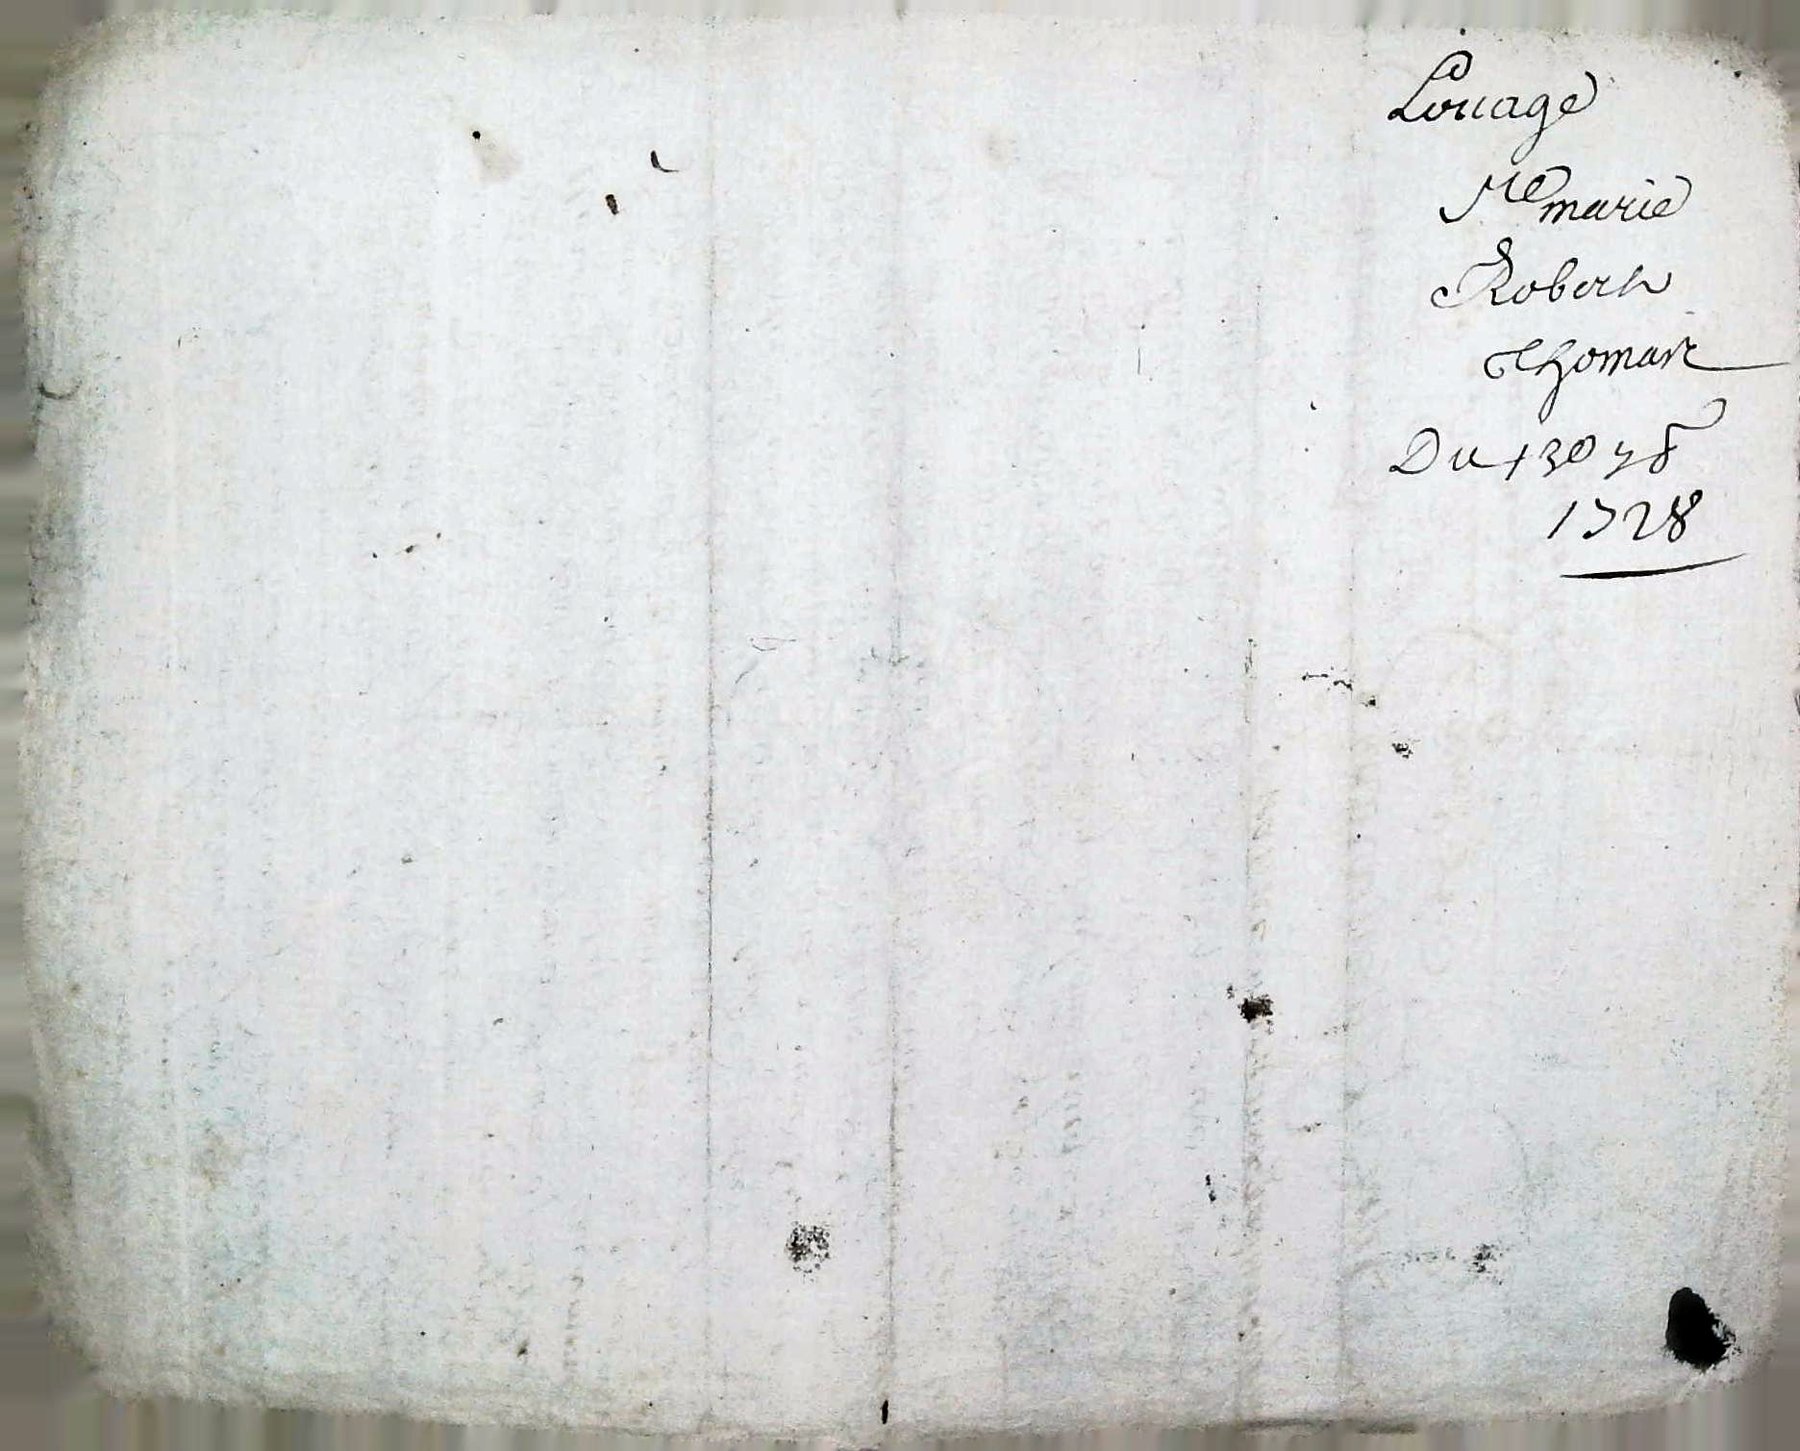 Louage
Me marie
Robert
Thomas
Du 13e 7b
1728